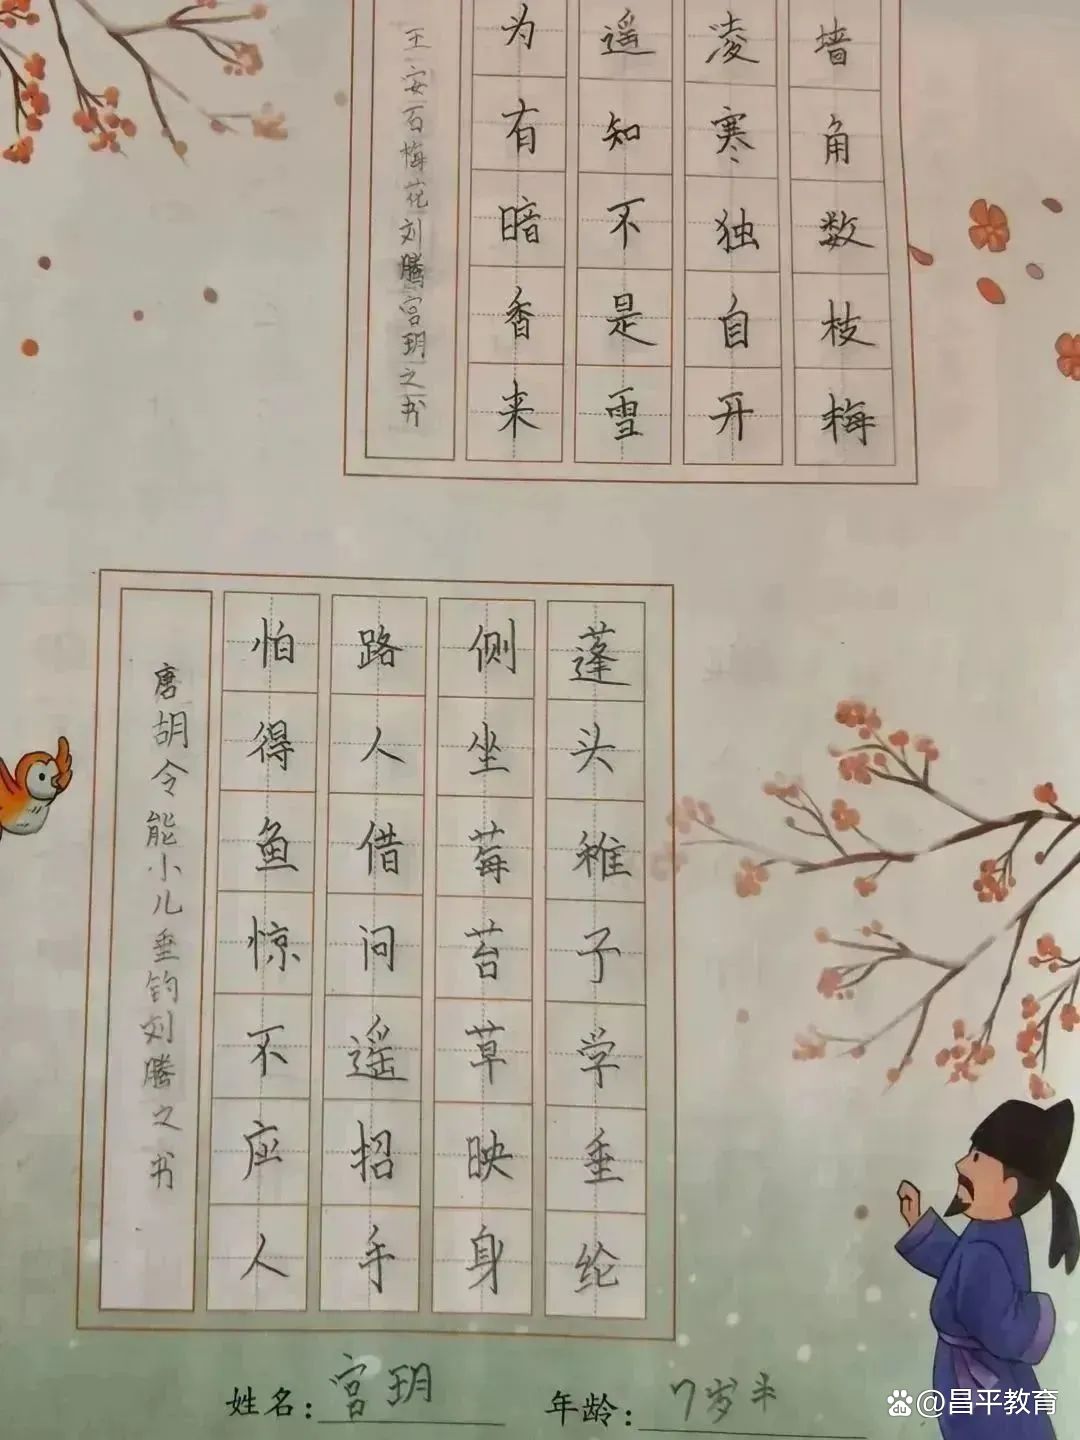 墙角数枝梅
凌寒独自开
遥知不是雪
为有暗香来
王安石梅花刘腾宫玥之书
蓬头稚子学垂纶
侧坐莓苔草映身
路人借问遥招手
怕得鱼惊不应人
唐胡令能小儿垂钓刘腾之书
姓名：宫玥 年龄：7岁半
@昌平教育